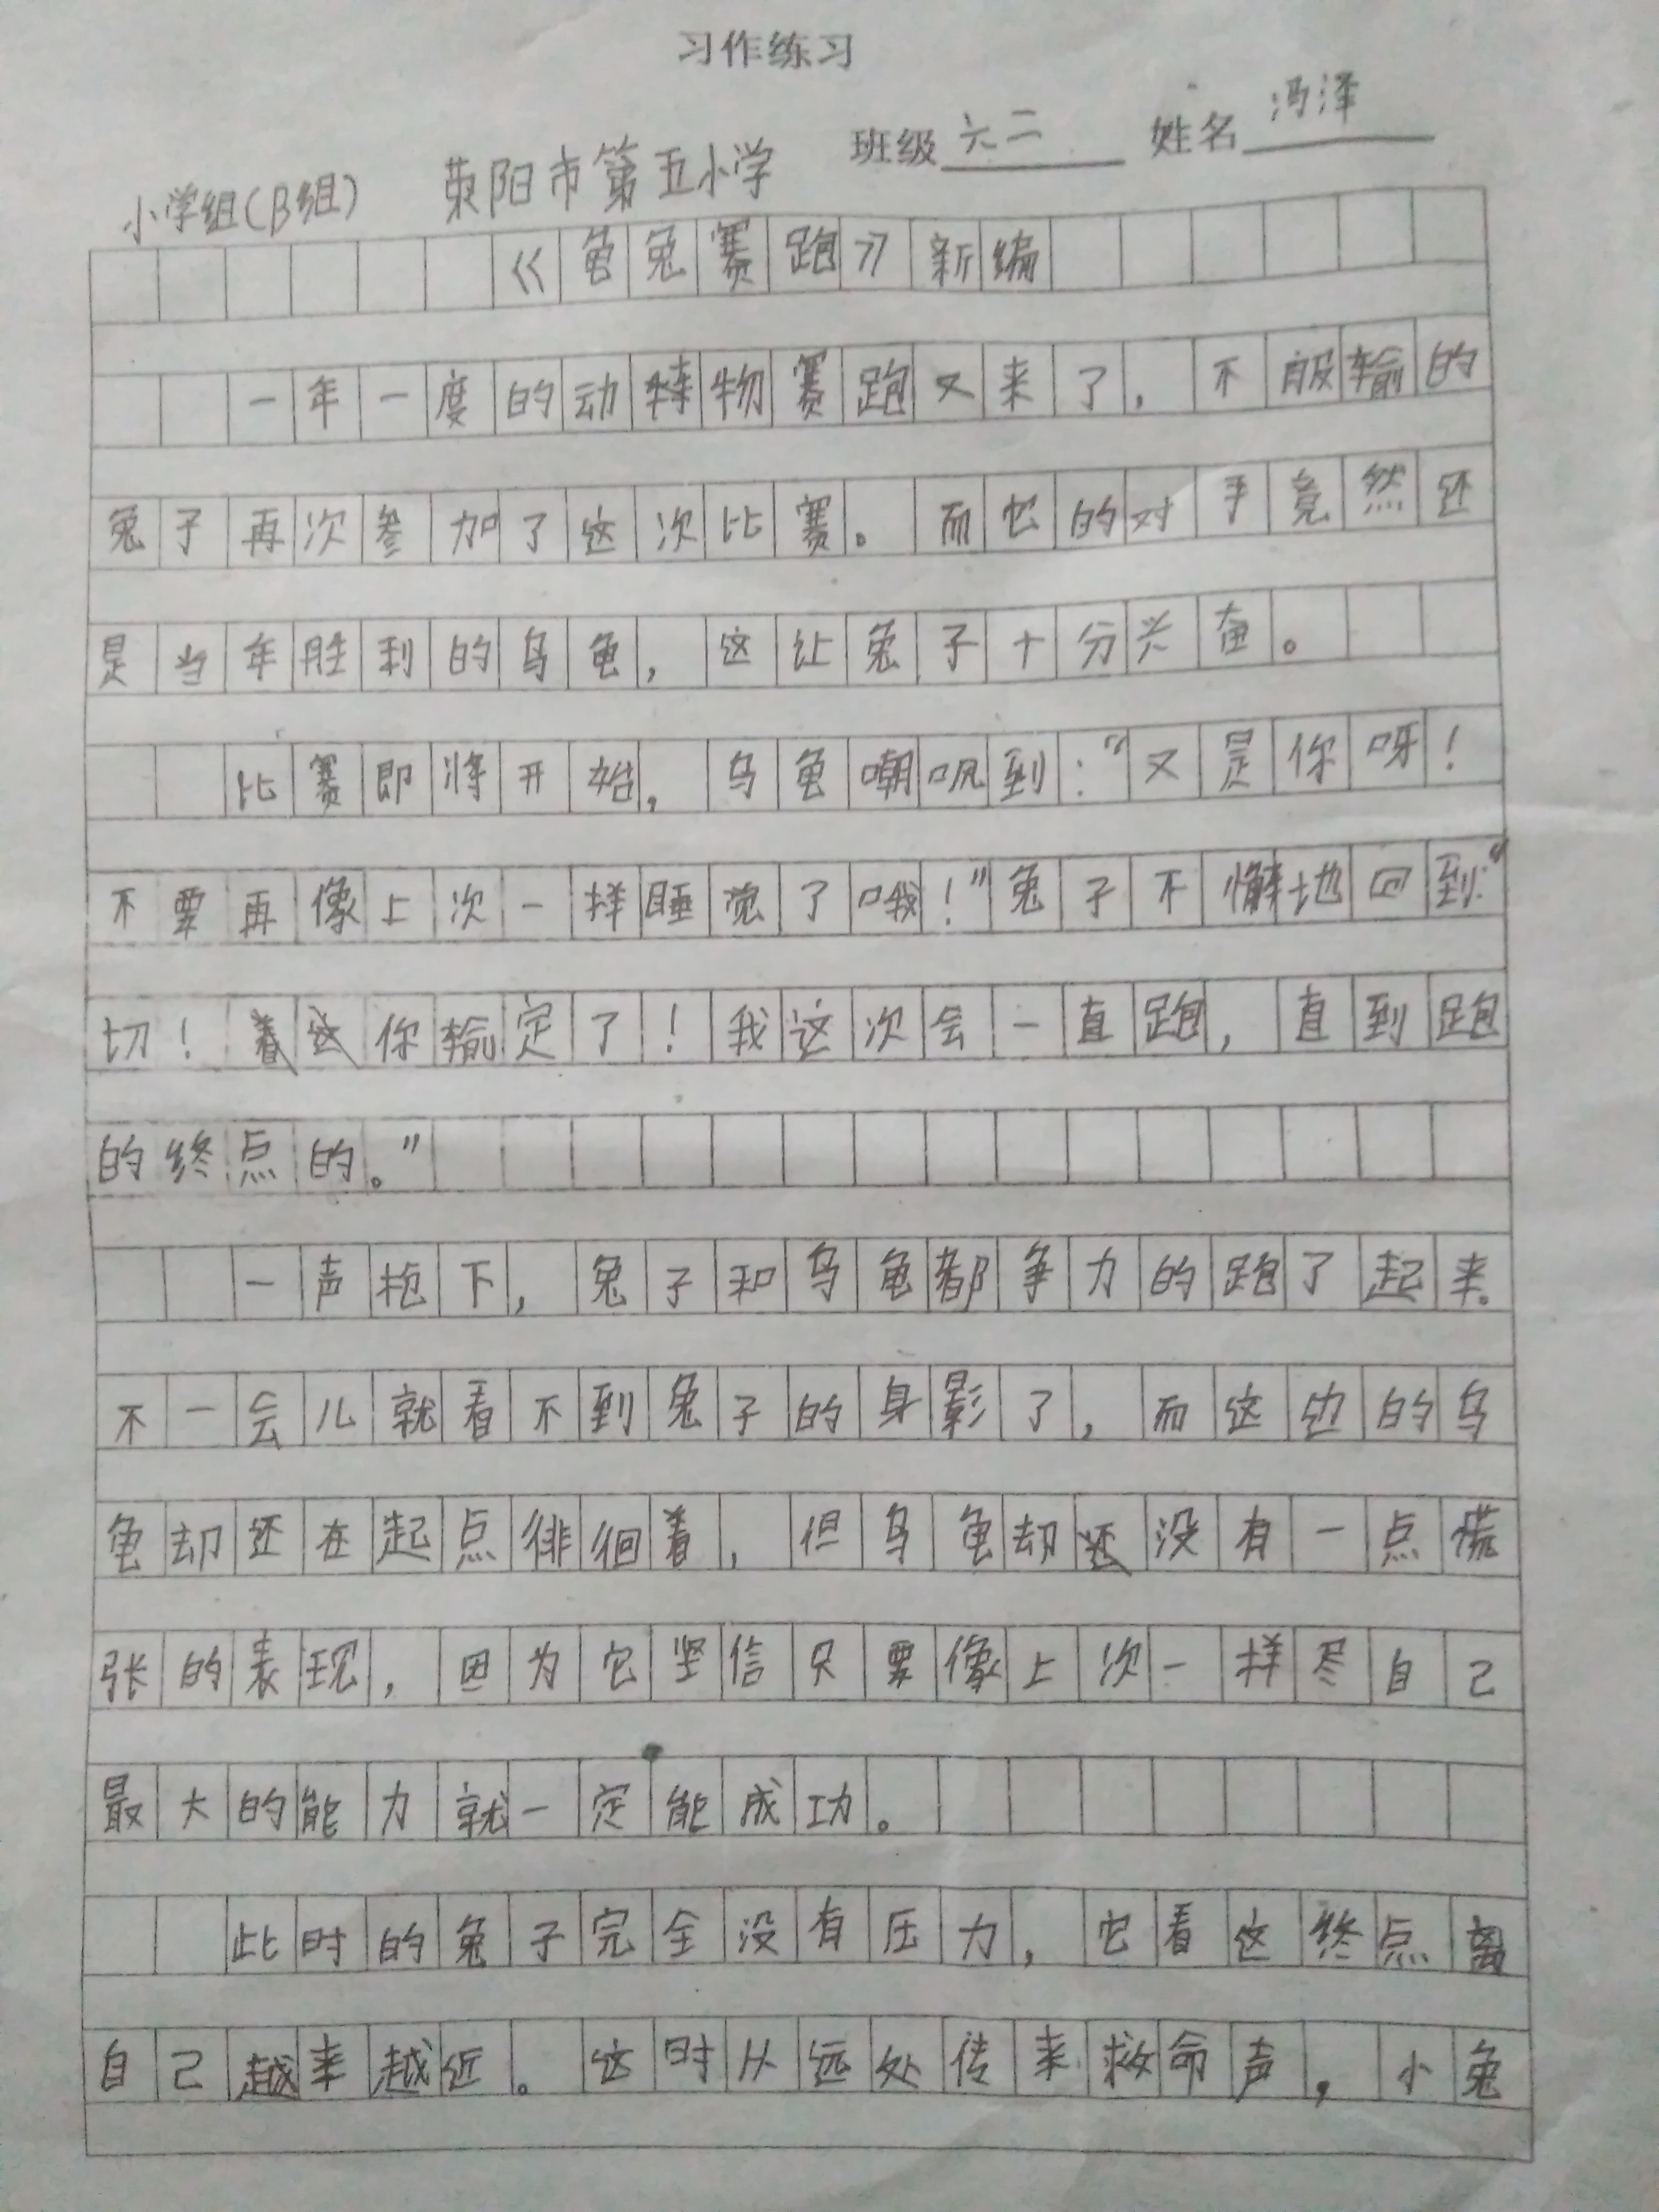 习作练习
班级 六二 姓名 冯泽
小学组(B组) 荥阳市第五小学
《龟兔赛跑》新编
一年一度的动特物赛跑又来了，不服输的
兔子再次参加了这次比赛。而它的对手竟然还
是当年胜利的乌龟，这让兔子十分兴奋。
比赛即将开始，乌龟嘲讽到：“又是你呀！
不要再像上次一样睡觉了哦！”兔子不懈地回到：“
切！你输定了！我这次会一直跑，直到跑
的终点的。”
一声枪下，兔子和乌龟都争力的跑了起来。
不一会儿就看不到兔子的身影了，而这边的乌
龟却还在起点徘徊着，但乌龟却没有一点慌
张的表现，因为它坚信只要像上次一样尽自己
最大的能力就一定能成功。
此时的兔子完全没有压力，它看这终点离
自己越来越近。这时从远处传来救命声，小兔